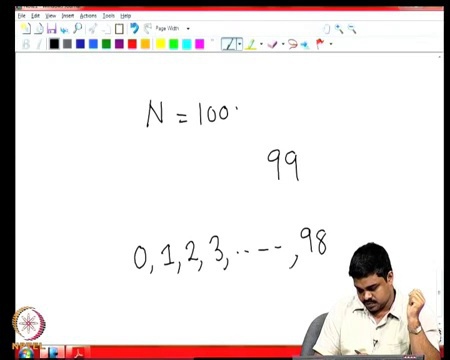 File Edit View Insert Actions Tools Help
Page Width
N = 100
99
0, 1, 2, 3, ..---, 98